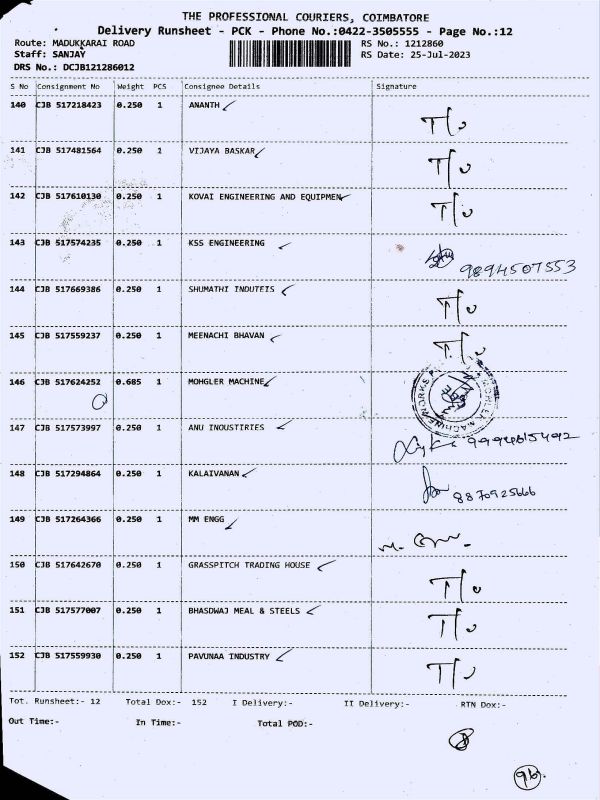 THE PROFESSIONAL COURIERS, COIMBATORE
Delivery Runsheet - PCK - Phone No.:0422-3505555 - Page No.:12
Route: MADUKKARAI ROAD RS No.: 1212860
Staff: SANJAY RS Date: 25-Jul-2023
DRS No.: DCJB121286012
S No Consignment No Weight PCS Consignee Details Signature
140 CJB 517218423 0.250 1 ANANTH
141 CJB 517481564 0.250 1 VIJAYA BASKAR
142 CJB 517610130 0.250 1 KOVAI ENGINEERING AND EQUIPMEN
143 CJB 517574235 0.250 1 KSS ENGINEERING
9894507553
144 CJB 517669386 0.250 1 SHUMATHI INDUTEIS
145 CJB 517559237 0.250 1 MEENACHI BHAVAN
146 CJB 517624252 0.685 1 MOHGLER MACHINE
147 CJB 517573997 0.250 1 ANU INOUSTIRIES
148 CJB 517294864 0.250 1 KALAIVANAN
8870925666
149 CJB 517264366 0.250 1 MM ENGG
150 CJB 517642670 0.250 1 GRASSPITCH TRADING HOUSE
151 CJB 517577007 0.250 1 BHASDWAJ MEAL & STEELS
152 CJB 517559930 0.250 1 PAVUNAA INDUSTRY
Tot. Runsheet:- 12 Total Dox:- 152 I Delivery:- II Delivery:- RTN Dox:-
Out Time:- In Time:- Total POD:-